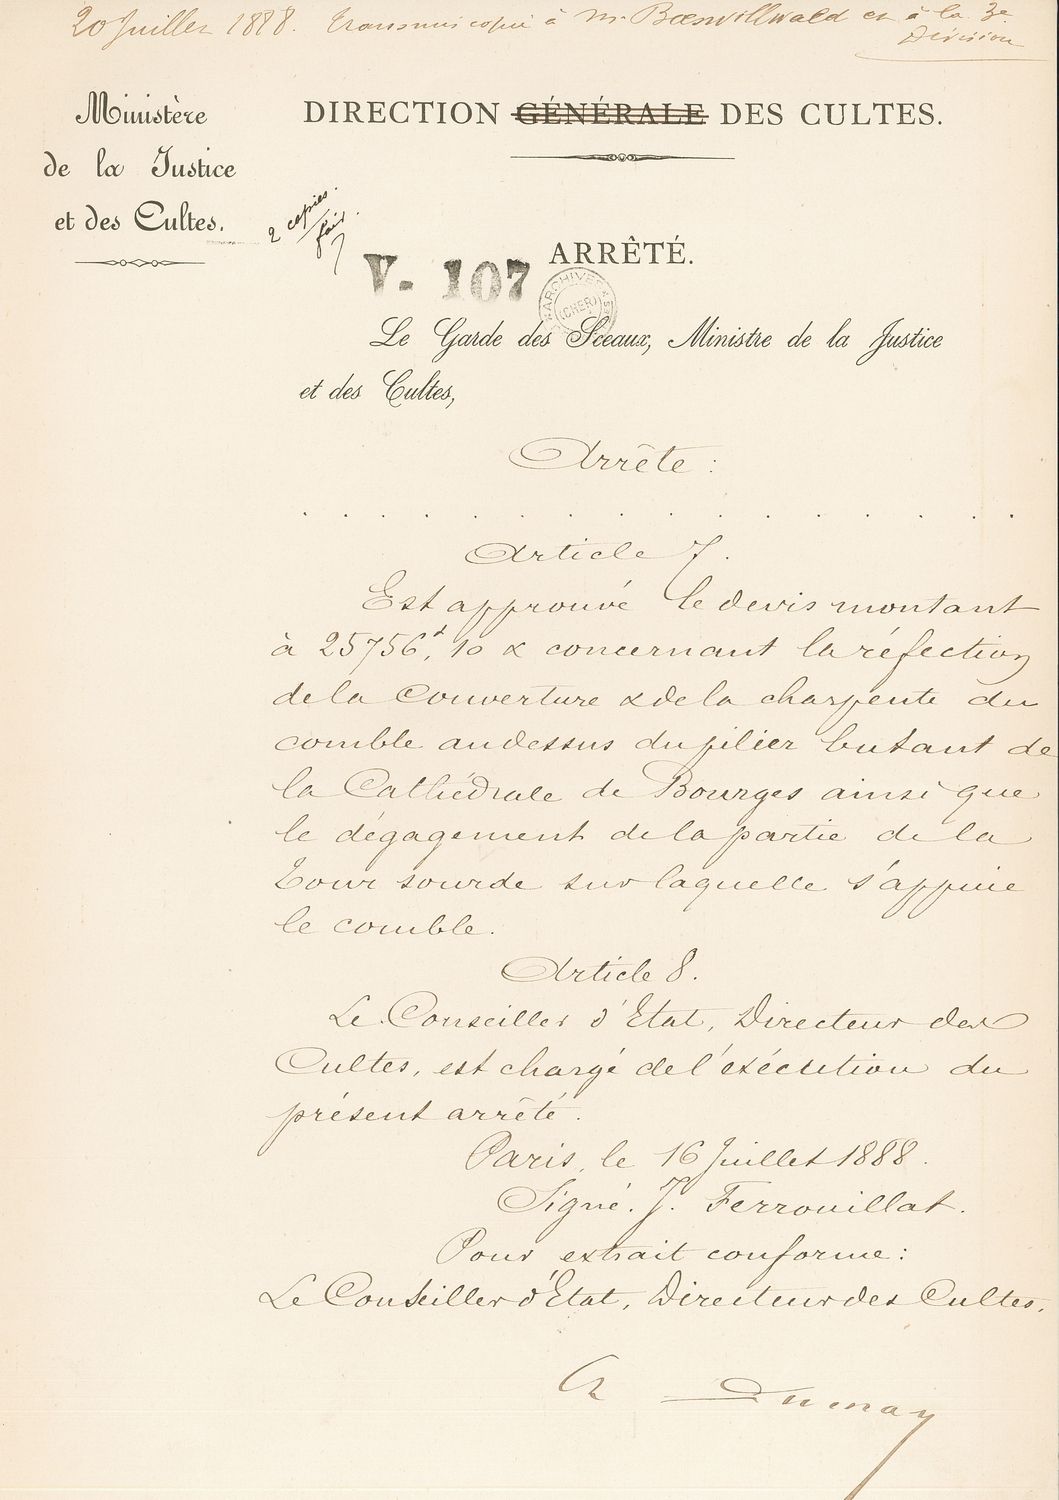 20 Juillet 1888. Transmis copie à Mr Boeswillwald et à la 3e
Division
Ministère
de la Justice
et des Cultes.
DIRECTION GÉNÉRALE DES CULTES.
2 copies
fait
ARRÊTÉ.
V- 107
ARCHIVES
(CHER)
Le Garde des Sceaux, Ministre de la Justice
et des Cultes,
Arrête :
. . . . . . . . . . . . . . . .
Article 7.
Est approuvé le devis montant
à 25756f, 10 & concernant la réfection
de la Couverture & de la charpente du
comble au dessus du pilier butant de
la Cathédrale de Bourges ainsi que
le dégagement de la partie de la
Tour sourde sur laquelle s'appuie
le comble.
Article 8.
Le Conseiller d'Etat, Directeur des
Cultes, est chargé de l'exécution du
présent arrêté.
Paris, le 16 Juillet 1888.
Signé. J. Ferrouillat.
Pour extrait conforme :
Le Conseiller d'Etat, Directeur des Cultes,
Dumay